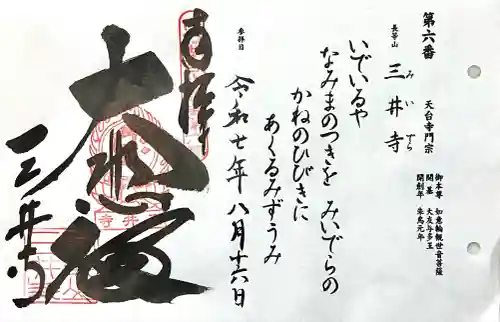 第六番
長等山
三井寺
みいでら
天台寺門宗
御本尊 如意輪観世音菩薩
開基 大友与多王
開創年 朱鳥元年
いでいるや
なみまのつきを みいでらの
かねのひびきに
あくるみずうみ
参拝日
令和七年八月十六日
奉拝
大悲殿
三井寺